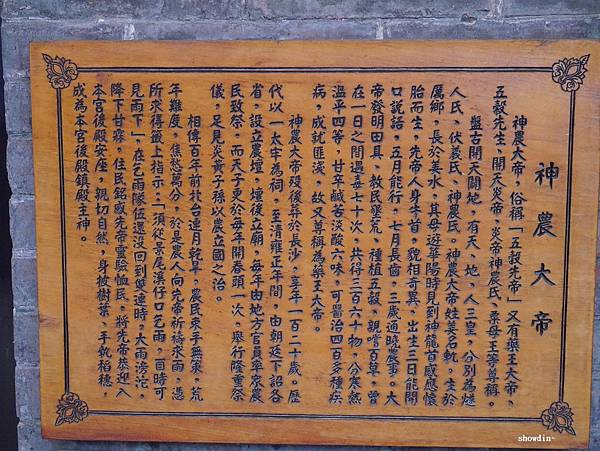 神農大帝
神農大帝，俗稱「五穀先帝」又有藥王大帝、
五穀先生、開天炎帝、炎帝神農氏、粟母王等尊稱。
盤古開天闢地，有天、地、人三皇，分別為燧
人氏、伏羲氏、神農氏。神農大帝姓姜名軌，生於
厲鄉，長於姜水，其母遊華陽時見到神龍首感應懷
胎而生，先帝人身牛首，貌相奇異，出生三日能開
口說話，五月能行，七月長齒，三歲通曉農事。大
帝發明田具，教民墾荒，種植五穀，親嚐百草，曾
在一日之間遇毒七十次，共得三百六十物，分寒熱
溫平四等，甘辛鹹苦淡酸六味，可醫治四百多種疾
病，成就匪淺，故又尊稱為藥王大帝。
神農大帝歿後葬於長沙，享年一百二十歲。歷
代以一太牢為祠，至清雍正年間，由朝廷下詔各
省，設立農壇，壇後立廟，每年由地方官員率眾農
民致祭，而天子更於每年開春頭一次，舉行隆重祭
儀，足見炎黃子孫以農立國之治。
相傳百年前朴台連月乾旱，農民束手無策，荒
年難度，焦愁萬分，於是農人向先帝祈禱求雨，憑
所求得籤上指示，「須從景尾溪仔口乞雨，酉時可
見雨下」，在乞雨隊伍還沒回到雙連時，大雨滂沱，
降下甘霖，住民銘感先帝靈驗恤民，將先帝恭迎入
本宮後殿安座，親切自然，身披樹葉、手執稻穗，
成為本宮後殿鎮殿主神。
showdin~